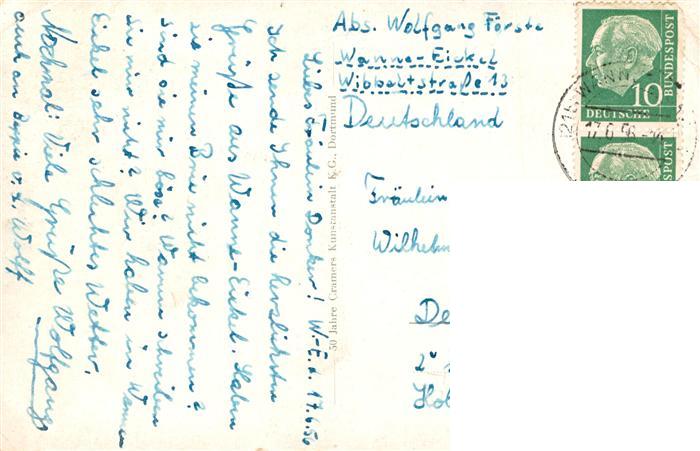 Abs. Wolfgang Förste
Wanne-Eickel
Wibbeltstraße 13
Deutschland
Liebes Fräulein Donker! W.-E. d. 17.6.56
Ich sende Ihnen die herzlichsten
Grüße aus Wanne-Eickel. Haben
sie meinen Brie nicht bekommen?
sind sie mir böse? Warum schreiben
Sie mir nicht? Wir haben in Wanne
Eikel sehr schlechtes Wetter.
Nochmal: Viele Grüße Wolfgang
auch an v. Wolff
50 Jahre Cramers Kunstanstalt K.G., Dortmund
Fräulein
Wilhelm
De
2
Hol
10
DEUTSCHE BUNDESPOST
WANN
17.6.56
POST